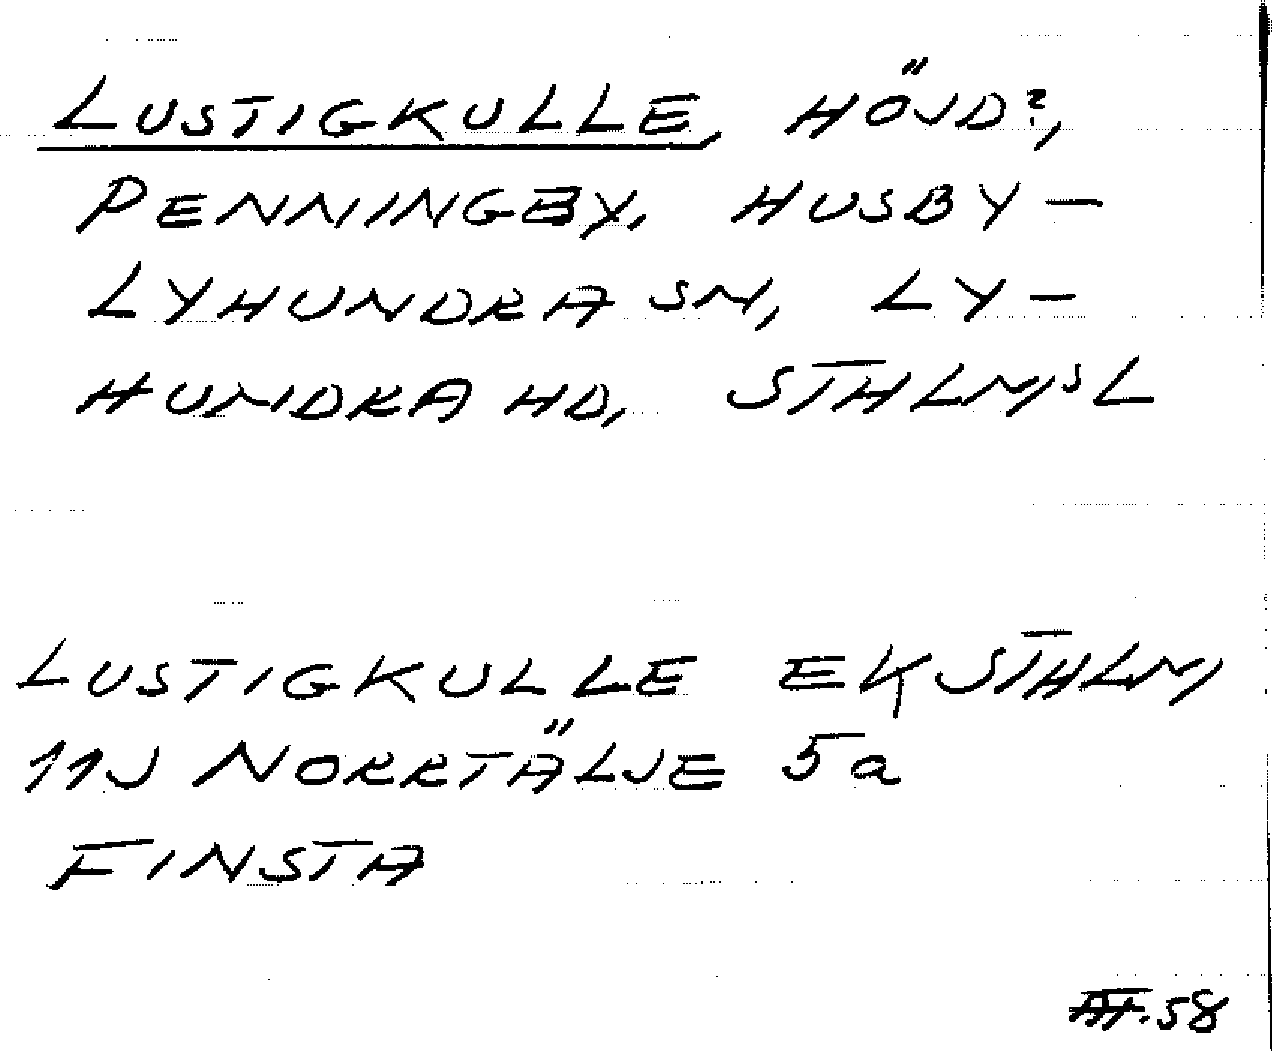 LUSTIGKULLE, HÖJD?,
PENNINGBY, HUSBY-
LYHUNDRA SN, LY-
HUNDRA HD, STHLM:S L
LUSTIGKULLE EK STHLM
11J NORRTÄLJE 5a
FINSTA
.58